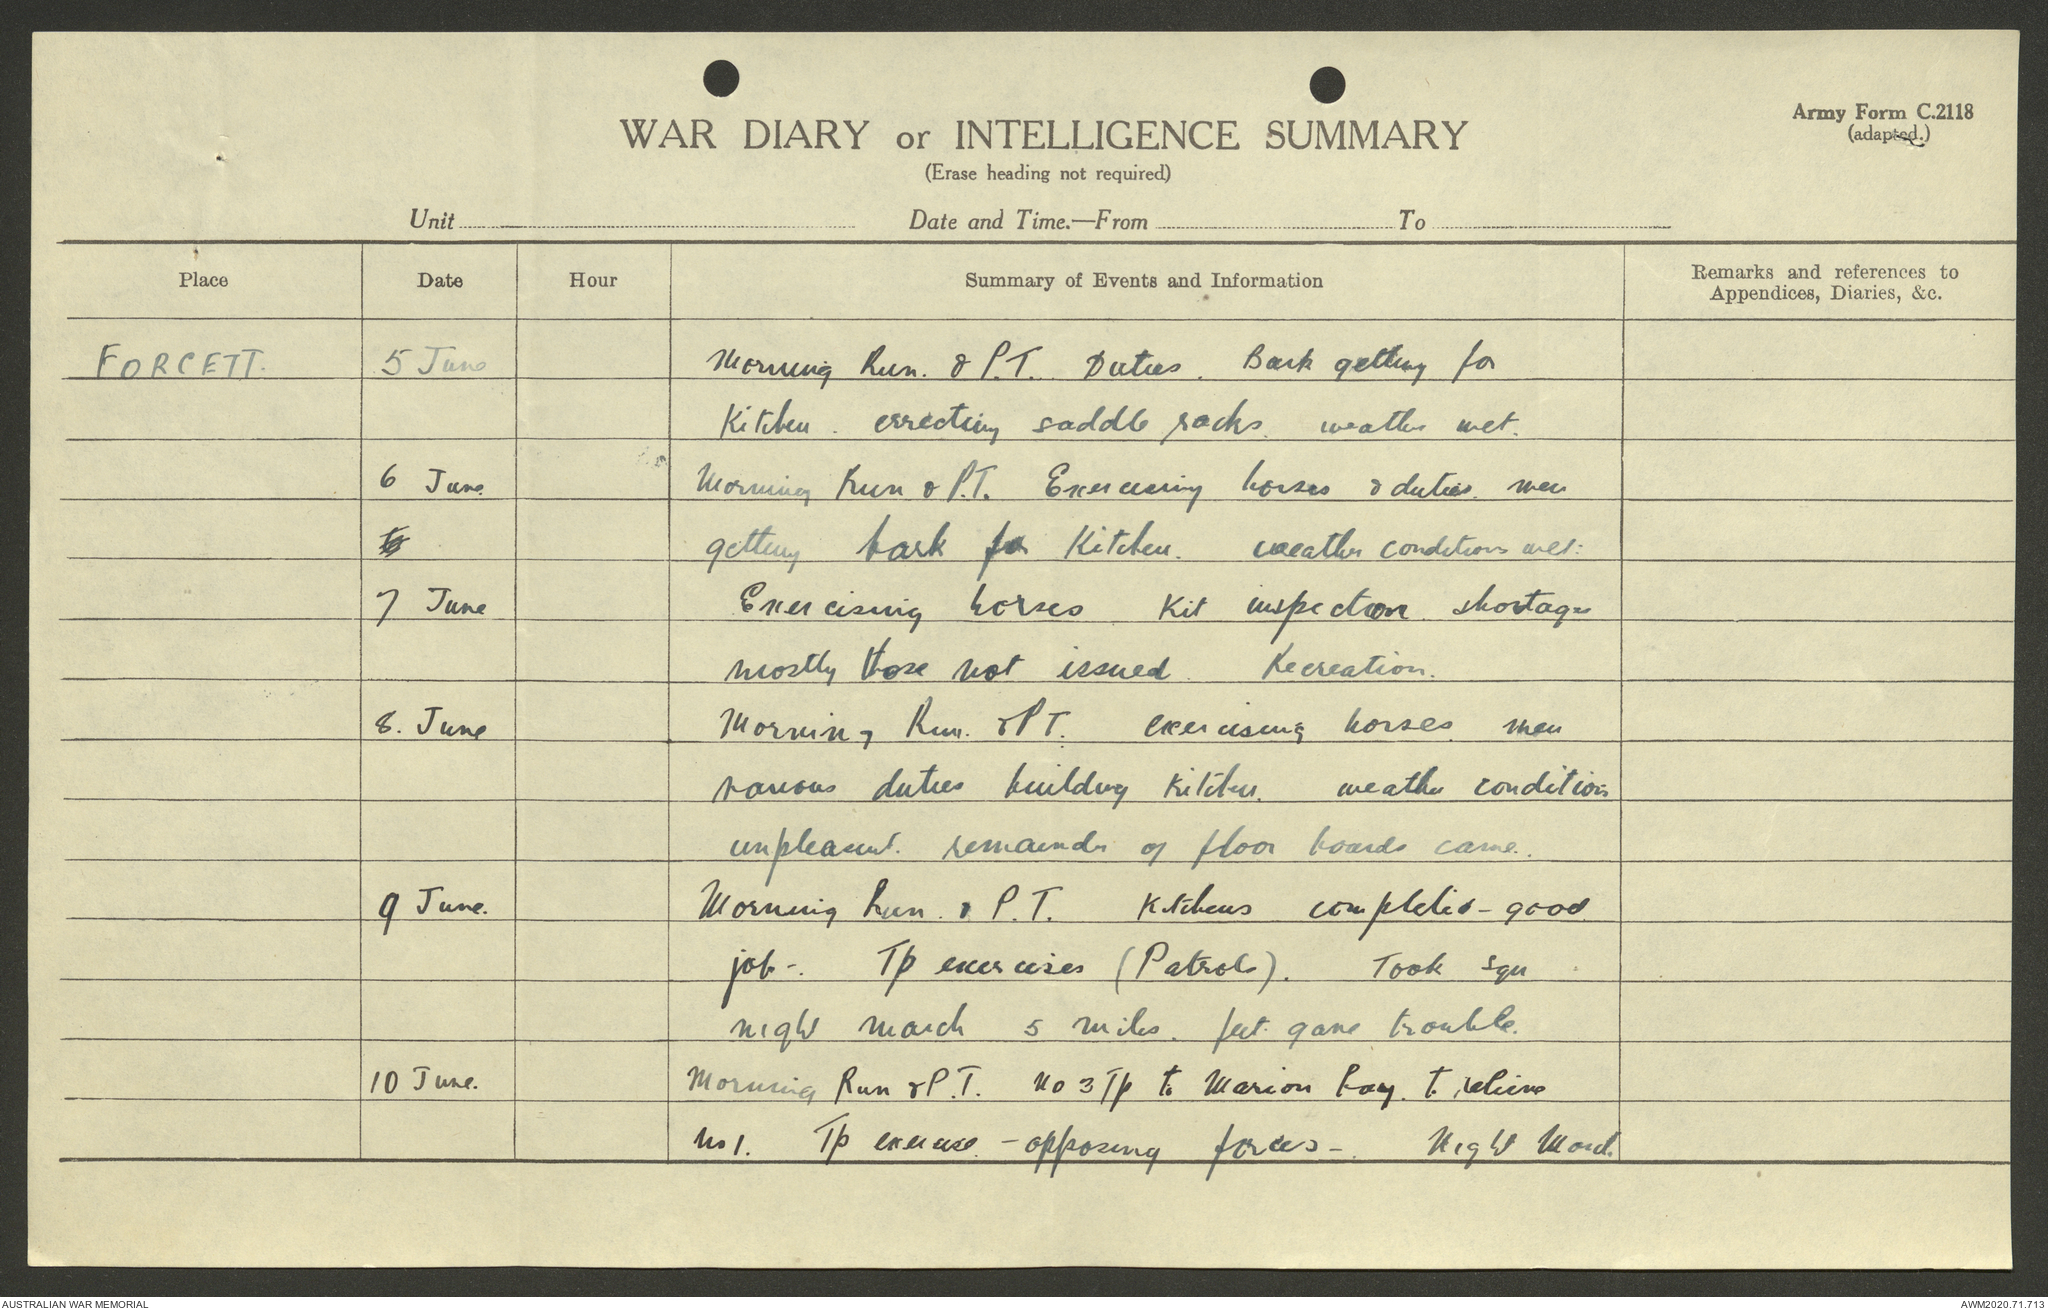 Army Form C.2118
(adapted.)
WAR DIARY or INTELLIGENCE SUMMARY
(Erase heading not required)
Unit Date and Time.—From To
Place Date Hour Summary of Events and Information Remarks and references to Appendices, Diaries, &c.
FORCETT. 5 June Morning Run. & P.T. Duties. Bark getting for
Kitchen. errecting saddle racks. weather wet.
6 June Morning Run & P.T. Exercising horses & duties. men
getting bark for Kitchen. weather conditions wet.
7 June Exercising horses. Kit inspection. shortages
mostly those not issued. Recreation.
8. June Morning Run. & PT. exercising horses. men
various duties building Kitchen. weather conditions
unpleasant. remainder of floor boards came.
9 June. Morning Run. & P.T. Kitchens completed - good
job -. Tp exercises (Patrols). Took Sqn
night march 5 miles. feet gave trouble.
10 June. Morning Run & P.T. No 3 Tp to Marion bay. to relieve
No 1. Tp exercise - opposing forces -. Night March
AUSTRALIAN WAR MEMORIAL AWM2020.71.713